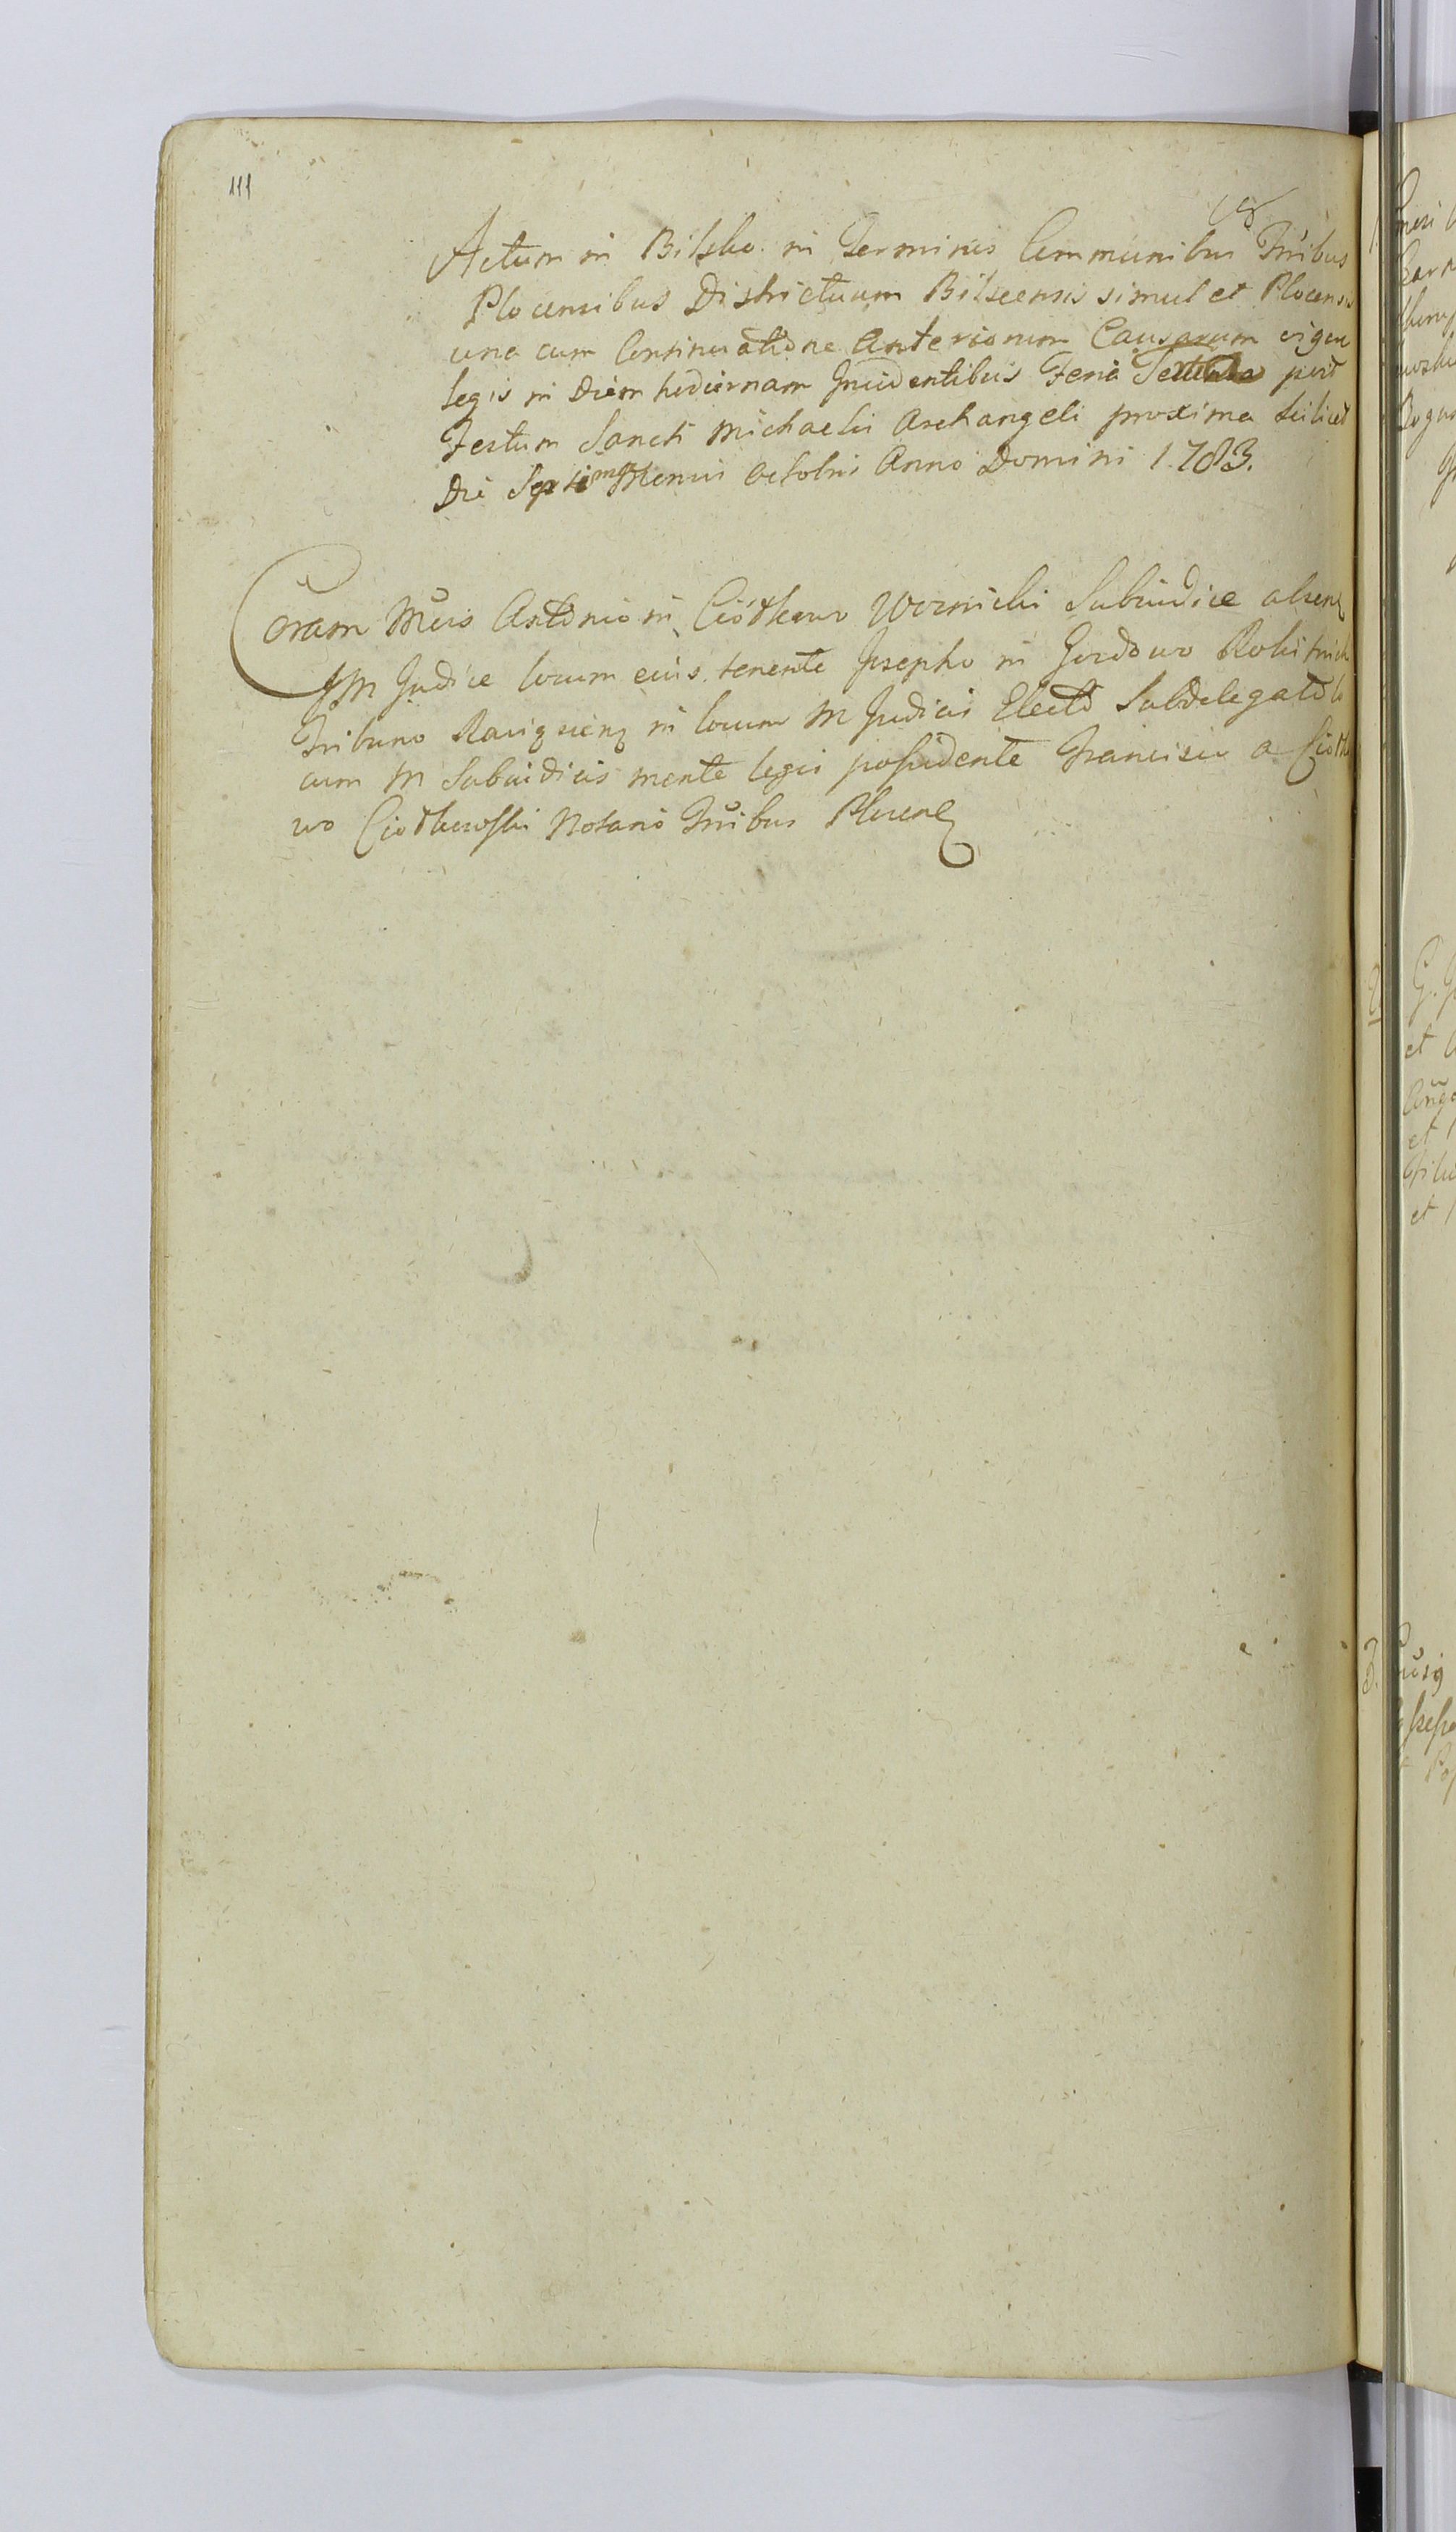 111
Actum in Bilsko in Terminis Communibus Trribus
Plocensibus Districtuum Bilscensis simul et Plocensis
una cum Continuatione Anteriorum Causarum vigore
legis in Diem hodiernam Incidentibus Feria post
Festum Sancti Michaelis Archangeli proxima scilicet
Die Septima Mensis Octobris Anno Domini 1783.
Coram Mcis Antonio in Ciółkowo Subiudice absen
M Judice locum eius tenente Josepho in Gordowo
Tribuno in locum M Judicis Electo Subdelegato
cum M Subiudicis mente legis possidente Francisco a
wo Ciołkowski Notario Trribus Plocen